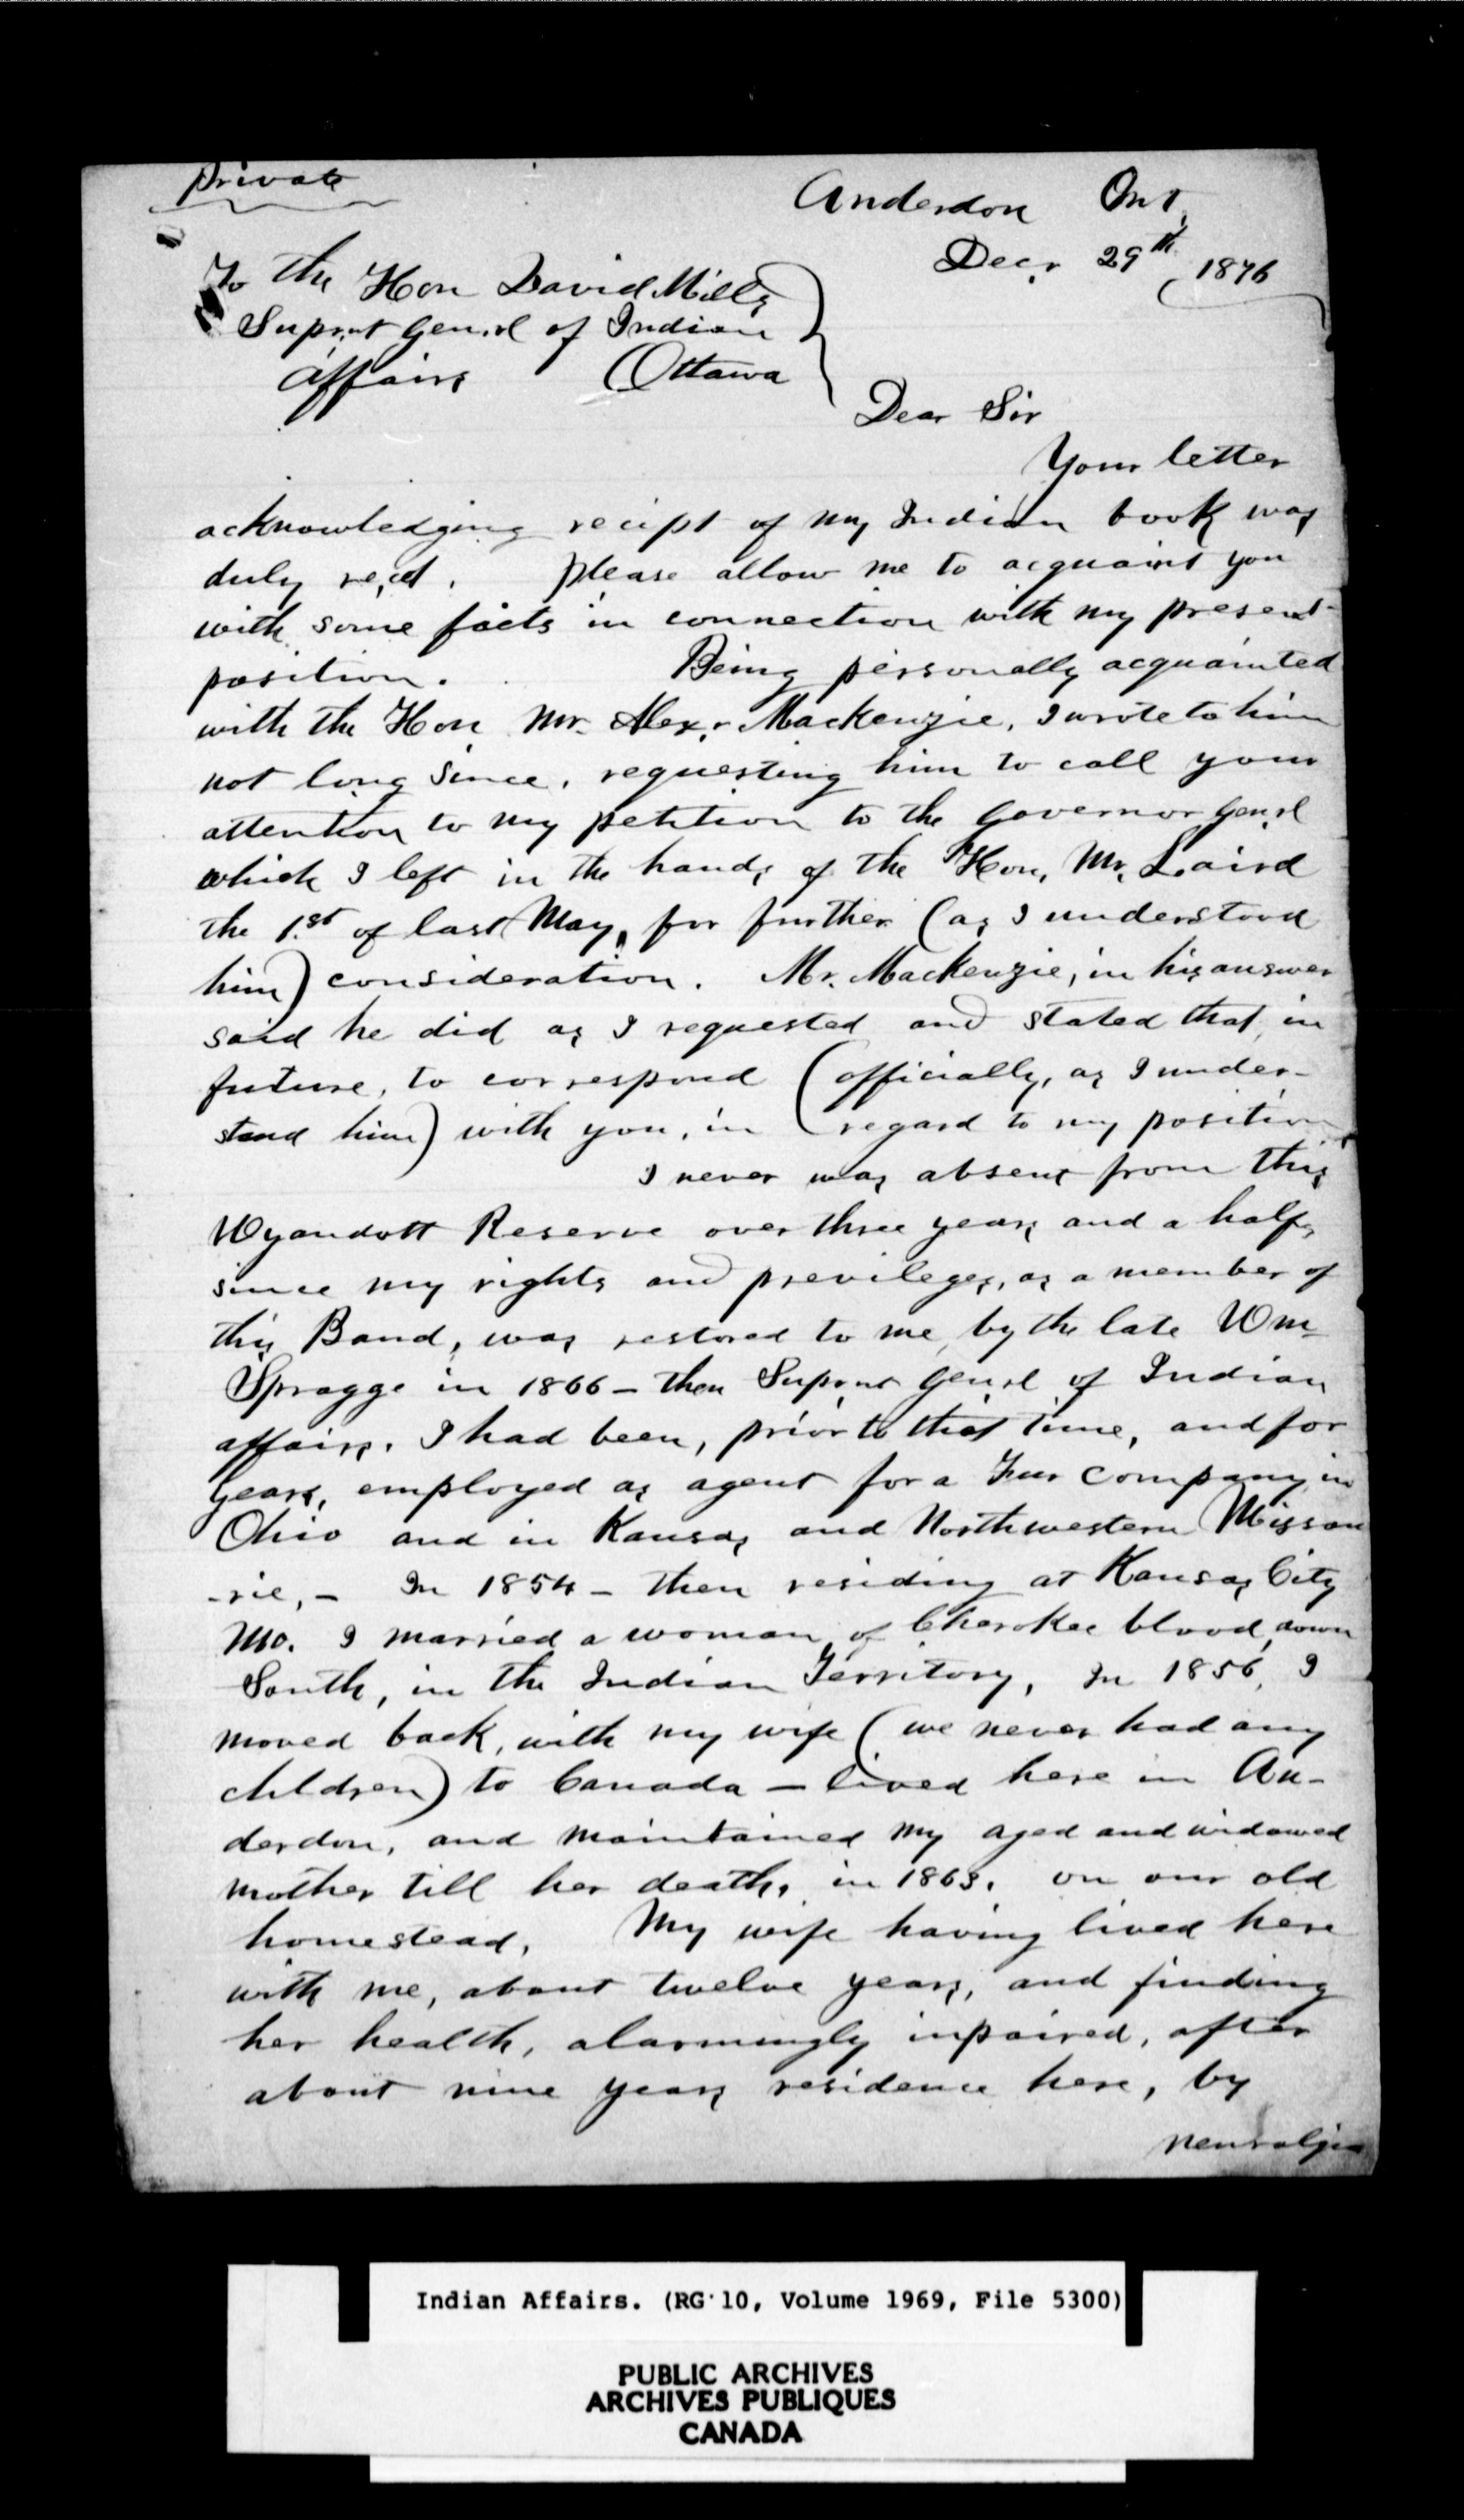 Private
Anderdon Ont.
Decr 29th 1876
To the Hon David Mills
Suprnt Genrl of Indian
affairs Ottawa
Dear Sir
Your letter
acknowledging recipt of my Indian book was
duly recd. please allow me to acquaint you
with some facts in connection with my present
position. Being personally acquainted
with the Hon Mr. Alexr Mackenzie, I wrote to him
not long since, requesting him to call your
attention to my petition to the Governor Genrl
which I left in the hands of the Hon, Mr. Laird
the 1st of last May, for further (as I understood
him) consideration. Mr. Mackenzie, in his answer
said he did as I requested and stated that, in
future, to correspond (officially, as I under-
stand him) with you, in regard to my position
I never was absent from this
Wyandott Reserve over three years and a half,
since my rights and previleges, as a member of
this Band, was restored to me, by the late Wm
Spragge in 1866 - then Suprnt Genrl of Indian
affairs. I had been, prior to that time, and for
years, employed as agent for a Fur Company, in
Ohio and in Kansas and Northwestern Missou
-rie, - In 1854 - then residing at Kansas City
Mo. I married a woman, of Cherokee blood, down
South, in the Indian Territory, In 1856, I
moved back, with my wife (we never had any
children) to Canada - lived here in An-
derdon, and maintained my aged and widowed
mother till her death, in 1863, on our old
homestead, My wife having lived here
with me, about twelve years, and finding
her health, alarmingly inpaired, after
about nine years residence here, by
neuralgia
Indian Affairs. (RG 10, Volume 1969, File 5300)
PUBLIC ARCHIVES
ARCHIVES PUBLIQUES
CANADA